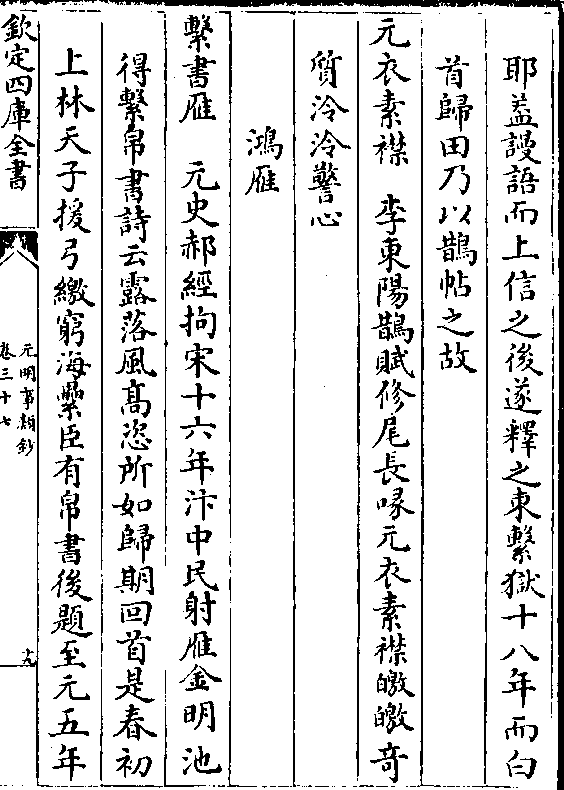 耶葢謾語而上信之後遂釋之東繫獄十八年而白
首歸田乃以鵲帖之故
元衣素襟　李東陽鵲賦修尾長喙元衣素襟皦皦奇
質泠泠警心
鴻雁
繫書雁　元史郝經拘宋十六年汴中民射雁金明池
得繫帛書詩云露落風髙恣所如歸期回首是春初
上林天子援弓繳窮海纍臣有帛書後題至元五年
欽定四庫全書
元明事類鈔
卷三十七
十九